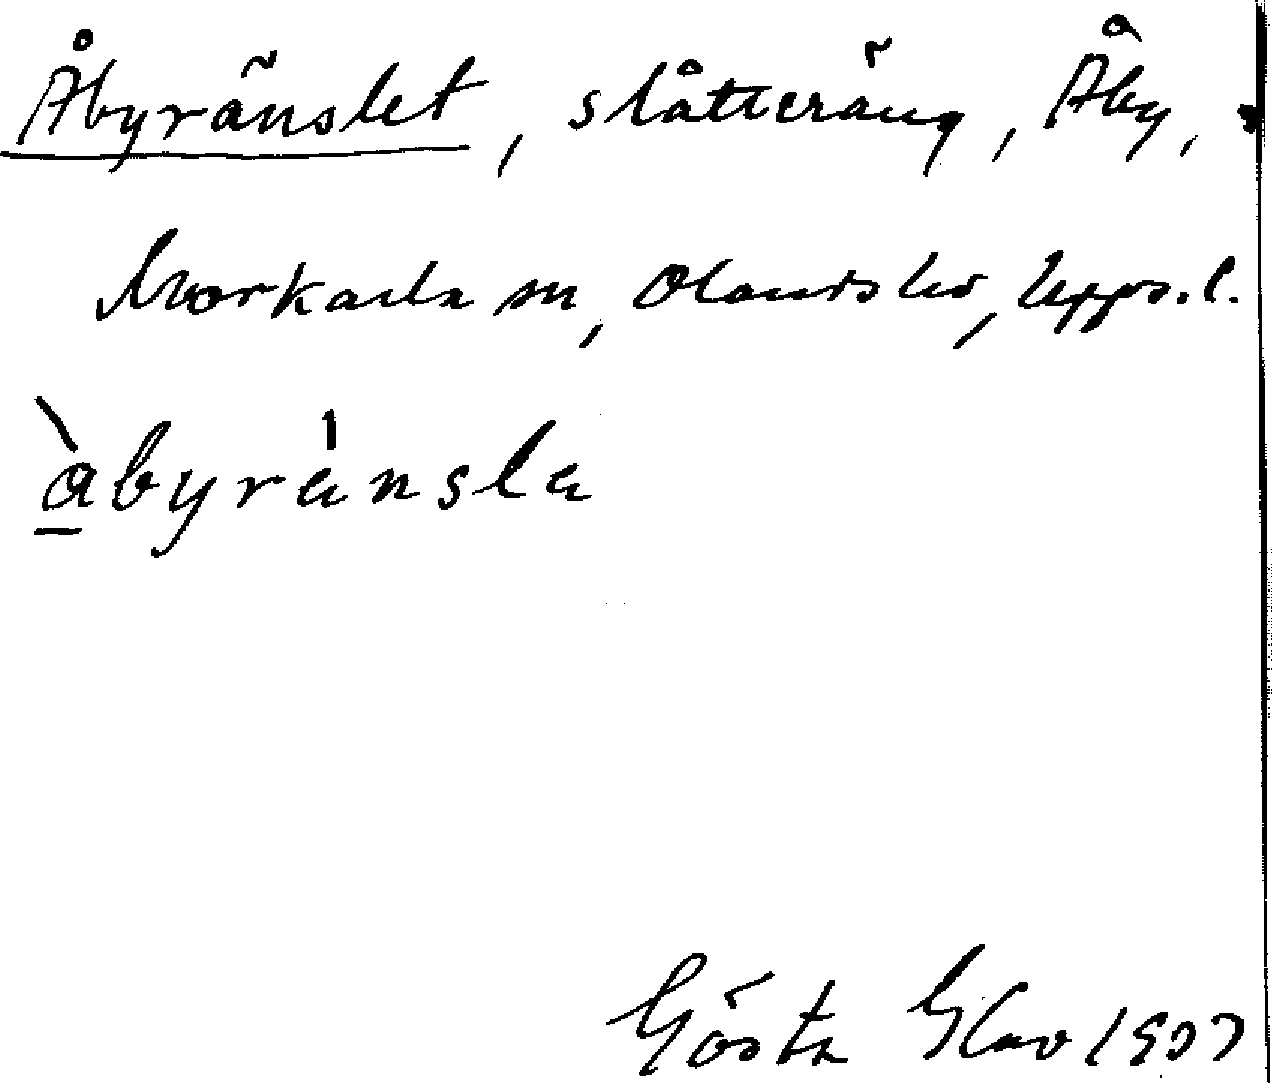 Åbyränslet, slåtteräng, Åby,
Morkarla sn, Olands hd, Upps. l.
åbyränsla
Gösta